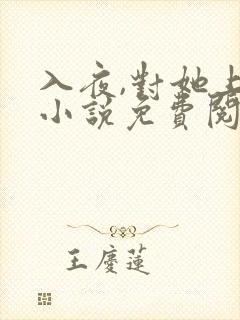 入夜,對她上
小說免費閱
王慶蓮